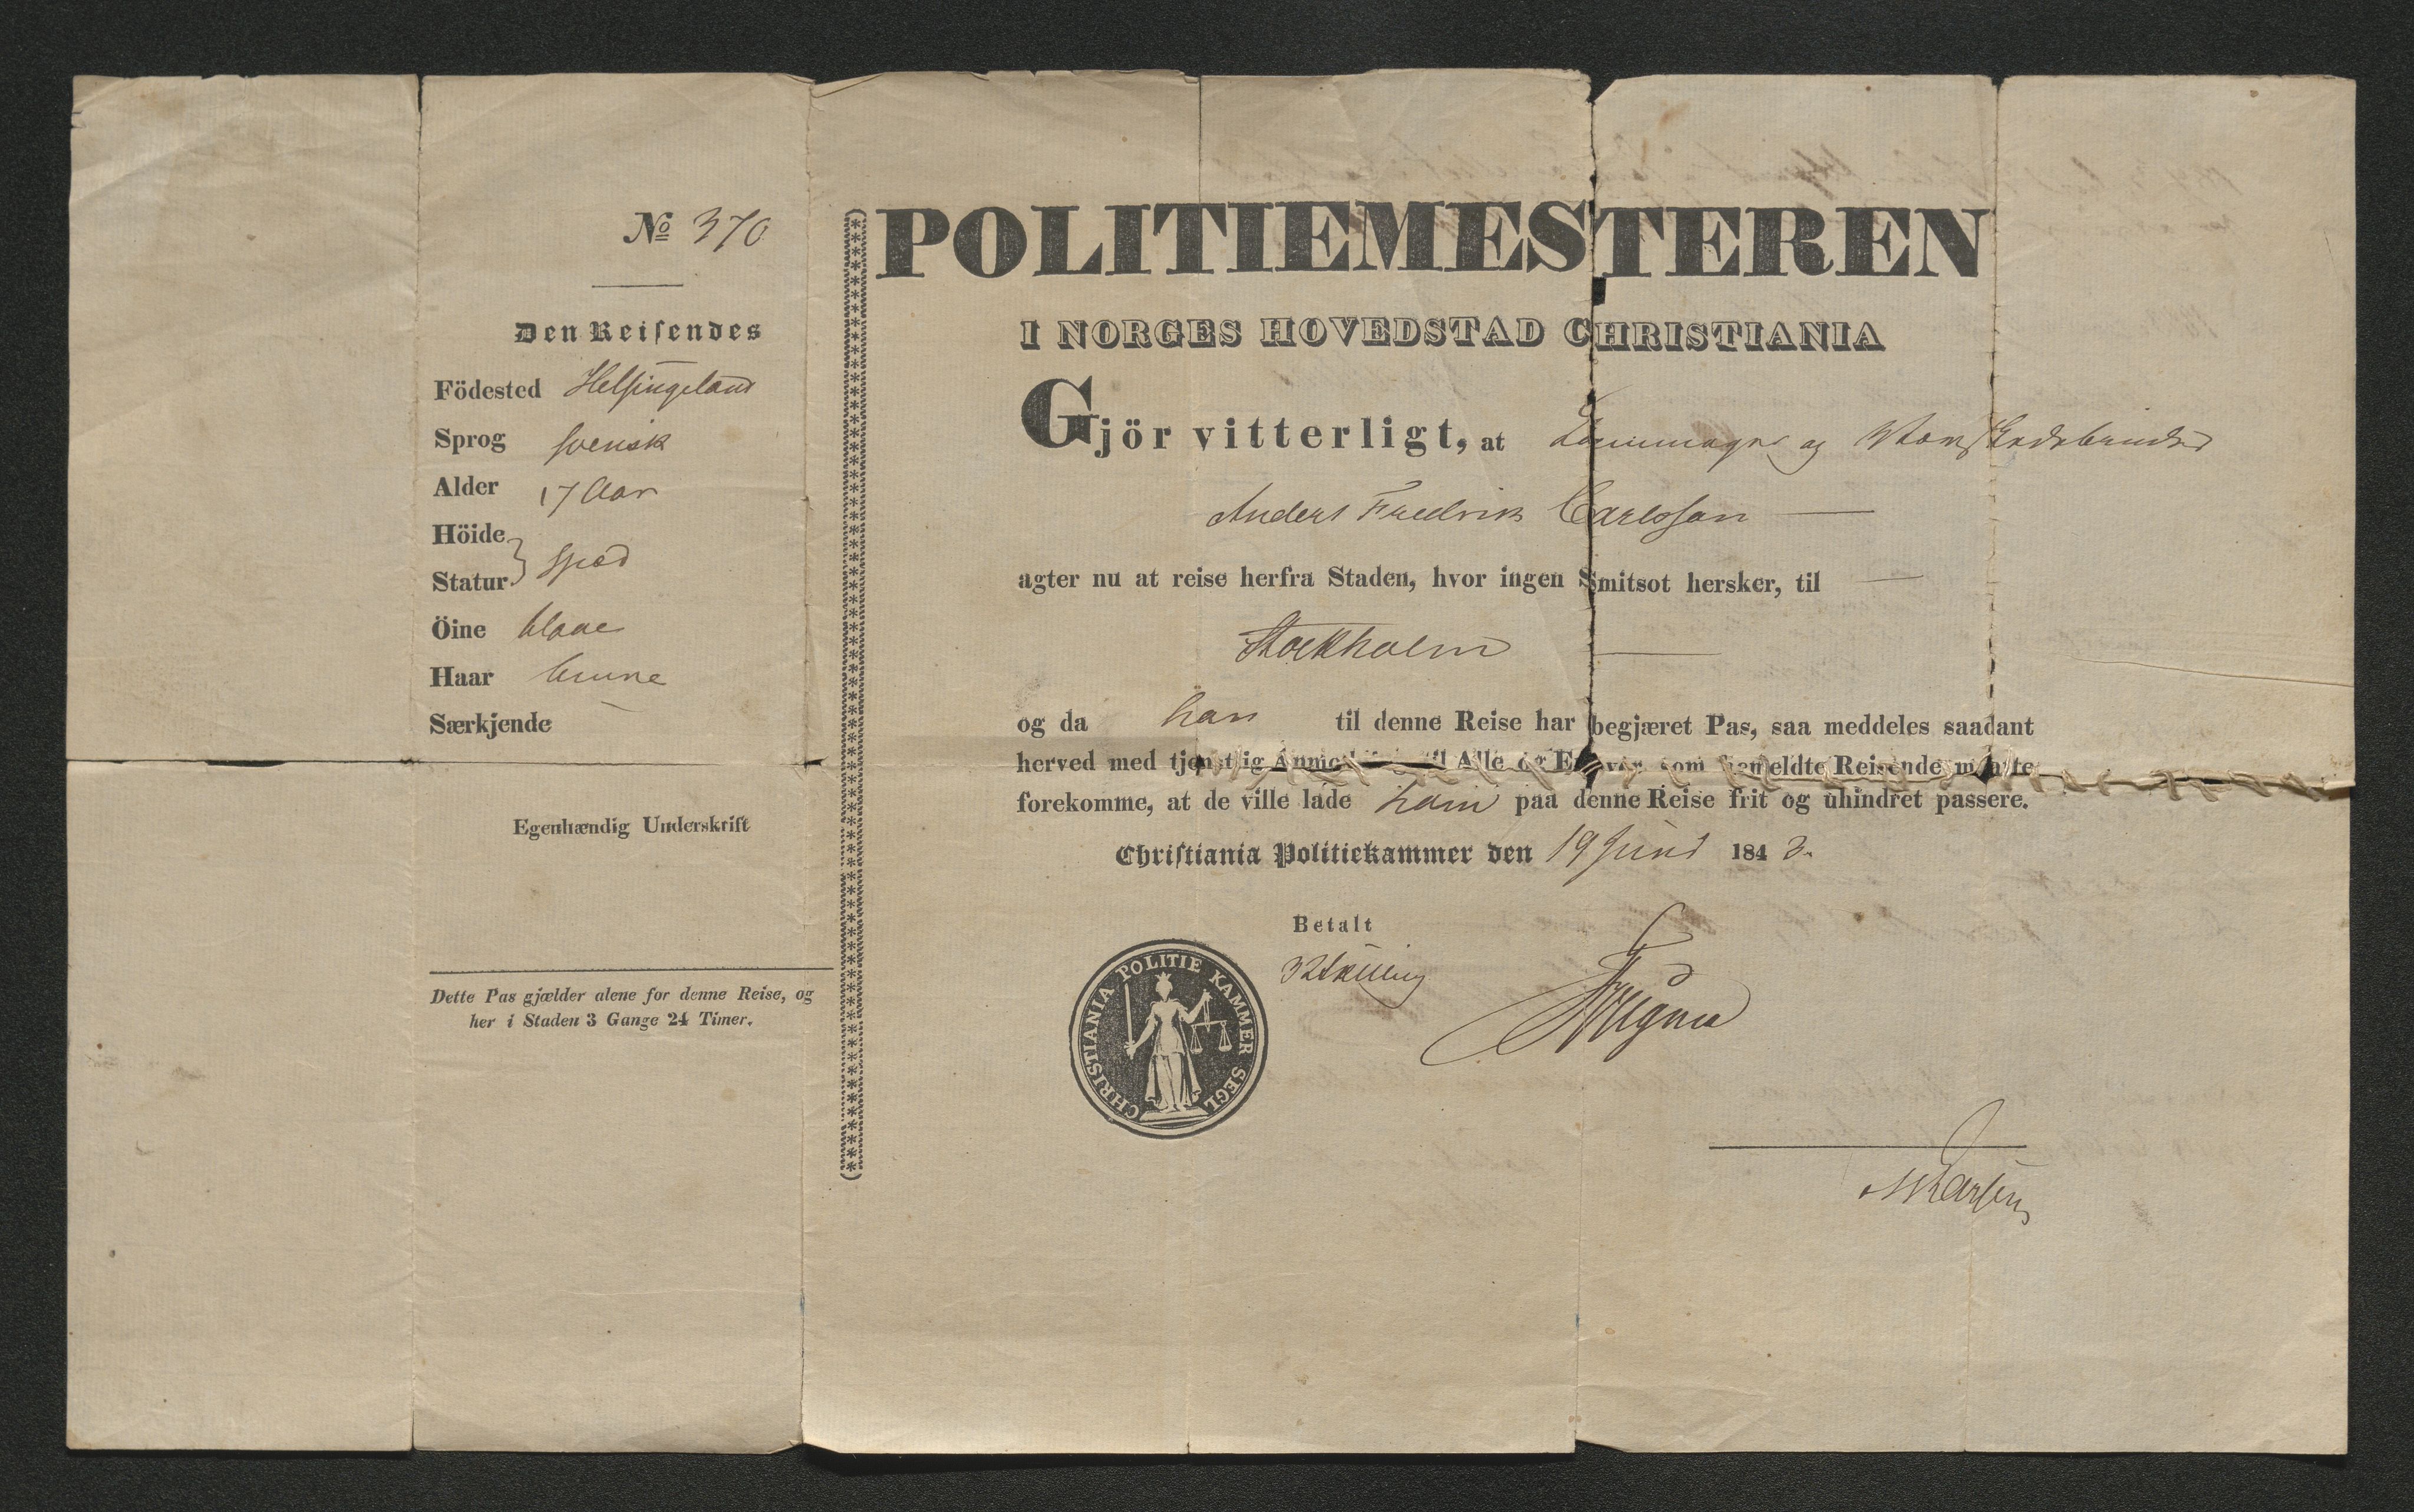 No 370
Den Reisendes
Födested Helsingeland
Sprog svensk
Alder 17 Aar
Höide
Statur } spæd
Öine blaae
Haar brune
Særkjende —
Egenhændig Underskrift
Dette Pas gjælder alene for denne Reise, og
her i Staden 3 Gange 24 Timer.
POLITIEMESTEREN
I NORGES HOVEDSTAD CHRISTIANIA
Gjör vitterligt, at og
Anders Fredrik Carlsson —
agter nu at reise herfra Staden, hvor ingen Smitsot hersker, til —
Stockholm —
og da han til denne Reise har begjæret Pas, saa meddeles saadant
herved med tjenstlig til Alle og Enhver, som bemeldte Reisende maatte
forekomme, at de ville lade ham paa denne Reise frit og uhindret passere.
Christiania Politiekammer den 19 Juni 1843.
Betalt
32 skilling
CHRISTIANIA POLITIE KAMMER SEGL